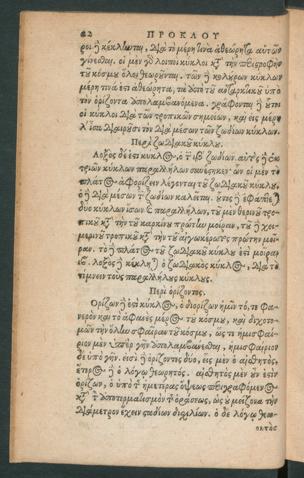 82 ΠΡΟΚΛΟΥ
ροι ἢ κέκλιωται, διὰ τὸ μέρη τινὰ ἀθεώρητα αὐτῶν
γίνεσθαι. οἱ μὲν γὸ λοιποὶ κύκλοι κατὰ τὴν περιστροφὴν
τοῦ κόσμου ὅλοι θεωροῦνται. τῶν δὲ κολύρων κύκλων
μέρη τινά ἐστι ἀθεώρητα, τὰ ἀπὸ τοῦ ἀνταρκτικοῦ ὑπὸ
τὸν ὁρίζοντα ἀπολαμβανόμενα. γράφονται δὲ οὗτοι
οἱ κύκλοι διὰ τῶν τροπικῶν σημείων, καὶ εἰς μέρη
δ' ἴσα διαιροῦσι τὸν διὰ μέσων τῶν ζωδίων κύκλον.
Περὶ ζωδιακοῦ κύκλου.
Λοξὸς δέ ἐστι κύκλος, ὁ τῶν ιβ ζωδίων. αὐτὸς δὲ ἐκ
τριῶν κύκλων παραλλήλων συνέστηκεν· ὧν οἱ μὲν τὸ
πλάτος ἀφορίζειν λέγονται τοῦ ζωδιακοῦ κύκλου,
ὁ δὲ διὰ μέσων τῶν ζωδίων καλεῖται. οὗτος δὲ ἐφάπτεται
δύο κύκλων ἴσων καὶ παραλλήλων, τοῦ μὲν θερινοῦ τρο-
πικοῦ κατὰ τὴν τοῦ καρκίνου πρώτην μοῖραν, τοῦ δὲ χει-
μερινοῦ τροπικοῦ κατὰ τὴν τοῦ αἰγοκέρωτος πρώτην μοῖ-
ραν. τὸ δὲ πλάτος τοῦ ζωδιακοῦ κύκλου ἐστὶ μοιρῶν
ιβ. λοξὸς δὲ κέκληται ὁ ζωδιακὸς κύκλος, διὰ τὸ
τέμνειν τοὺς παραλλήλους κύκλους.
Περὶ ὁρίζοντος.
Ὁρίζων δέ ἐστι κύκλος, ὁ διορίζων ἡμῖν τό, τε φα-
νερὸν καὶ τὸ ἀφανὲς μέρος τοῦ κόσμου, καὶ διχοτο-
μῶν τὴν ὅλην σφαῖραν τοῦ κόσμου, ὡς τε ἡμισφαί-
ριον μὲν ὑπὲρ γῆν ἀπολαμβάνεσθαι, ἡμισφαίριον
δὲ ὑπὸ γῆν. εἰσὶ δὲ ὁρίζοντες δύο, εἷς μὲν ὁ αἰσθητός,
ἕτερος δὲ ὁ λόγῳ θεωρητός. αἰσθητὸς μὲν οὖν ἐστὶν
ὁρίζων, ὁ ὑπὸ τῆς ἡμετέρας ὄψεως περιγραφόμενος
κατὰ τὸν ἀποτερματισμὸν τῆς ὁράσεως, ὡς οὐ μείζονα τὴν
διάμετρον ἔχειν σταδίων δισχιλίων. ὁ δὲ λόγῳ θεω-